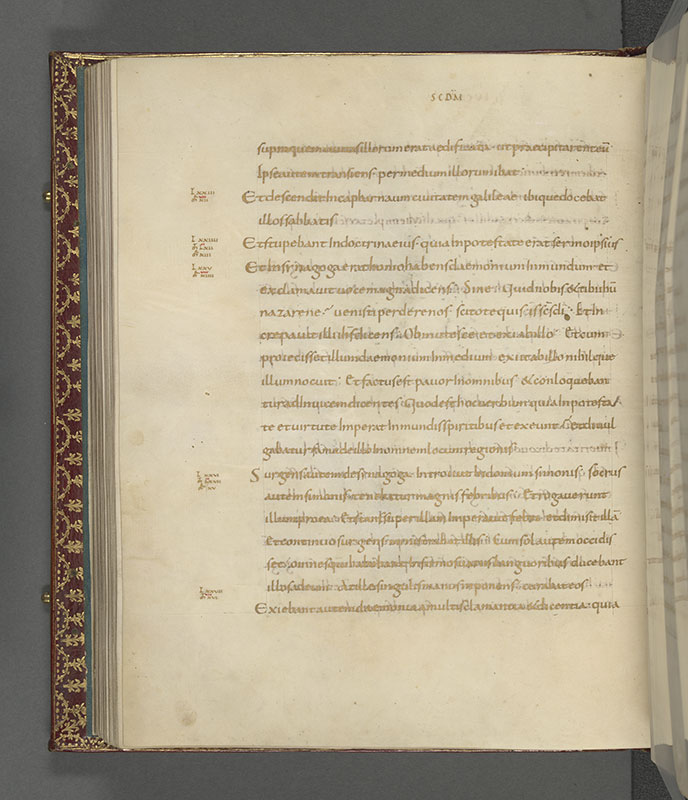 SCDM
supra quem civitas illorum erat aedificata · ut praecipitarent eū
Ipse autem transiens per medium illorum ibat
Et descendit In capharnaum civitatem galileae · ibique docebat
illos sabbatis
Et stupebant In doctrina eius · quia In potestate erat sermo ipsius
Et In synagoga erat homo habens daemonium Inmundum · et
exclamavit voce magna dicens · Sine Quid nobis et tibi ihū
nazarene · venisti perdere nos scio te qui sis sc̄s dī · Et In
crepavit illi ihs dicens · Obmutesce et exi ab illo · Et cum
proiecisset illum daemonium In medium exiit ab illo nihilque
illum nocuit · Et factus est pavor In omnibus & conloqueban
tur ad Invicem dicentes Quod est hoc verbum quia In potesta
te et virtute Imperat Inmundis spiritibus et exeunt · Et divul
gabatur fama de illo In omnem locum regionis
Surgens autem de synagoga Introivit In domum simonis · Socrus
autem simonis tenebatur magnis febribus · Et rogaverunt
illum pro ea · Et stans super illam Imperavit febri et dimisit illā
Et continuo surgens ministrabat illis · Cum sol autem occidis
set omnes qui habebant Infirmos variis languoribus ducebant
illos ad eum · At ille singulis manus Inponens curabat eos
Exiebant autem daemonia a multis clamantia et dicentia · quia